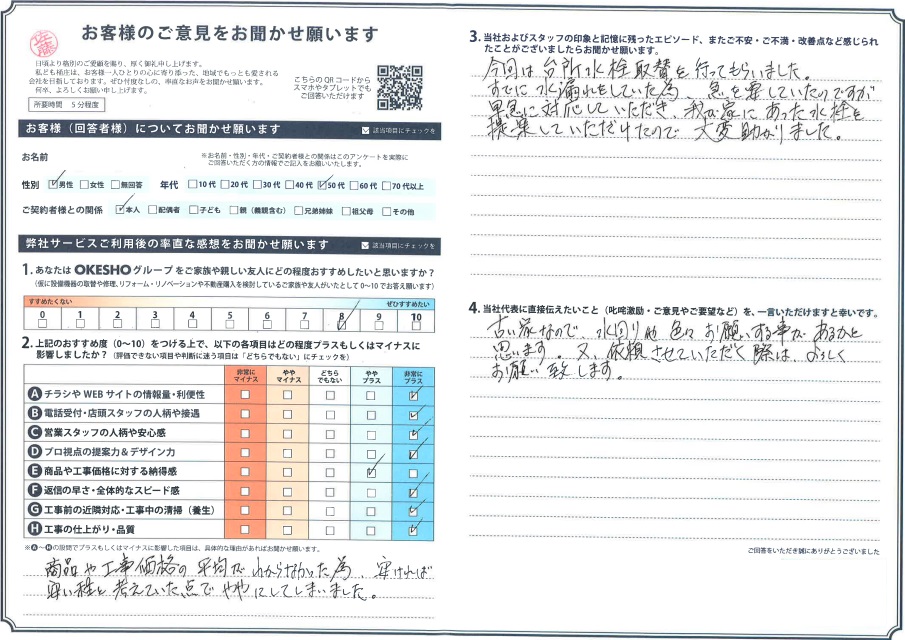 佐藤
お客様のご意見をお聞かせ願います
日頃より格別のご愛顧を賜り、厚く御礼申し上げます。
私ども桶庄は、お客様一人ひとりの心に寄り添った、地域でもっとも愛される
会社を目指しております。ぜひ忖度なしの、率直なお声をお聞かせ願います。
何卒、よろしくお願い申し上げます。
所要時間 5分程度
こちらのQRコードから
スマホやタブレットでも
ご回答いただけます
お客様(回答者様)についてお聞かせ願います
該当項目にチェックを
お名前
※お名前・性別・年代・ご契約者様との関係はこのアンケートを実際に
ご回答いただく方の情報でご記入をお願いいたします。
性別 男性 女性 無回答 年代 10代 20代 30代 40代 50代 60代 70代以上
ご契約者様との関係 本人 配偶者 子ども 親(義親含む) 兄弟姉妹 祖父母 その他
弊社サービスご利用後の率直な感想をお聞かせ願います
該当項目にチェックを
1.あなたはOKESHOグループをご家族や親しい友人にどの程度おすすめしたいと思いますか?
(仮に設備機器の取替や修理、リフォーム・リノベーションや不動産購入を検討しているご家族や友人がいたとして0~10でお答え願います)
すすめたくない ぜひすすめたい
0 1 2 3 4 5 6 7 8 9 10
2.上記のおすすめ度(0~10)をつける上で、以下の各項目はどの程度プラスもしくはマイナスに
影響しましたか?(評価できない項目や判断に迷う項目は「どちらでもない」にチェックを)
非常にマイナス ややマイナス どちらでもない ややプラス 非常にプラス
A チラシやWEBサイトの情報量・利便性
B 電話受付・店頭スタッフの人柄や接遇
C 営業スタッフの人柄や安心感
D プロ視点の提案力&デザイン力
E 商品や工事価格に対する納得感
F 返信の早さ・全体的なスピード感
G 工事前の近隣対応・工事中の清掃(養生)
H 工事の仕上がり・品質
※A~Hの設問でプラスもしくはマイナスに影響した項目は、具体的な理由があればお聞かせ願います。
商品や工事価格の平均がわからなかった為、安ければ
安い程と考えていた点でややにしてしまいました。
3.当社およびスタッフの印象と記憶に残ったエピソード、またご不安・ご不満・改善点など感じられ
たことがございましたらお聞かせ願います。
今回は台所水栓取替を行ってもらいました。
すでに水漏れをしていた為、急を要していたのですが
早急に対応していただき、我が家にあった水栓を
提案していただけたので大変助かりました。
4.当社代表に直接伝えたいこと(叱咤激励・ご意見やご要望など)を、一言いただけますと幸いです。
古い家なので、水回り他色々お願いする事があるかと
思います。又、依頼させていただく際は、よろしく
お願い致します。
ご回答をいただき誠にありがとうございました